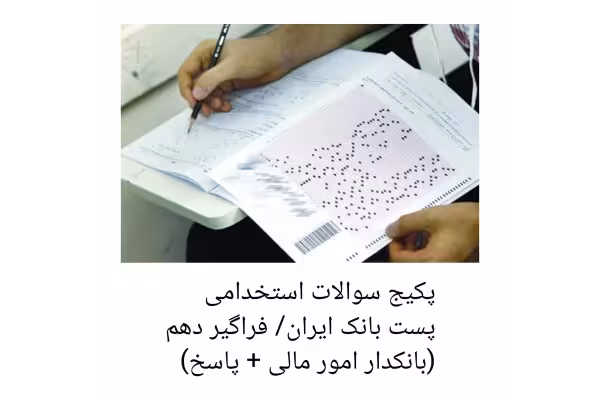 پکیج سوالات استخدامی
پست بانک ایران/ فراگیر دهم
(بانکدار امور مالی + پاسخ)